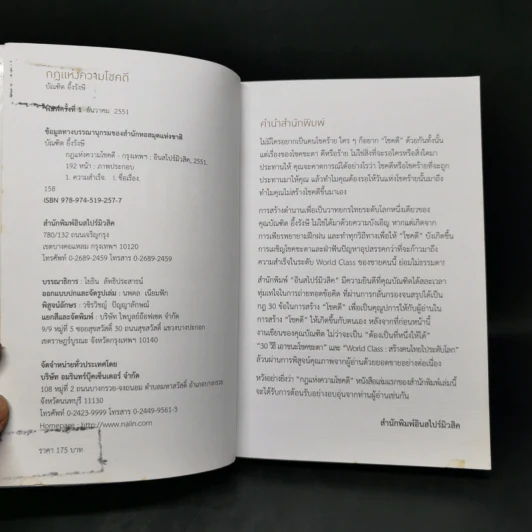 กฎแห่งความโชคดี
บัณฑิต อึ้งรังษี
พิมพ์ครั้งที่ 1 ธันวาคม 2551
ข้อมูลทางบรรณานุกรมของสำนักหอสมุดแห่งชาติ
บัณฑิต อึ้งรังษี
กฎแห่งความโชคดี - กรุงเทพฯ : อินสไปร์มิวสิค, 2551.
192 หน้า : ภาพประกอบ
1. ความสำเร็จ. I. ชื่อเรื่อง
158
ISBN 978-974-519-257-7
สำนักพิมพ์อินสไปร์มิวสิค
780/132 ถนนเจริญกรุง
เขตบางคอแหลม กรุงเทพฯ 10120
โทรศัพท์ 0-2689-2459 โทรสาร 0-2689-2459
บรรณาธิการ : โยธิน ลัทธิประสารน์
ออกแบบปกและจัดรูปเล่ม : นพดล เนียมพึก
พิสูจน์อักษร : วชิรวิชญ์ ปัญญาลักษณ์
แยกสีและจัดพิมพ์ : บริษัท ไพบูลย์อ๊อฟเซต จำกัด
9/9 หมู่ที่ 5 ซอยสุขสวัสดิ์ 30 ถนนสุขสวัสดิ์ แขวงบางปะกอก
เขตราษฎร์บูรณะ จังหวัดกรุงเทพฯ 10140
จัดจำหน่ายทั่วประเทศโดย
บริษัท อมรินทร์บุ๊คเซ็นเตอร์ จำกัด
108 หมู่ที่ 2 ถนนบางกรวย-จงถนอม ตำบลมหาสวัสดิ์ อำเภอบางกรวย
จังหวัดนนทบุรี 11130
โทรศัพท์ 0-2423-9999 โทรสาร 0-2449-9561-3
Homepage : http://www.naiin.com
ราคา 175 บาท
คำนำสำนักพิมพ์
ไม่มีใครอยากเป็นคนโชคร้าย ใคร ๆ ก็อยาก "โชคดี" ด้วยกันทั้งนั้น
แต่เรื่องของโชคชะตา ดีหรือร้าย ไม่ใช่สิ่งที่จะรอใครหรือสิ่งใดมา
ประทานให้ คุณจะคาดการณ์ได้อย่างไรว่า โชคดีหรือโชคร้ายที่จะถูก
ประทานมาให้คุณ แล้วทำไมคุณต้องรอให้วันแห่งโชคร้ายนั้นมาถึง
ทำไมคุณไม่สร้างโชคดีขึ้นมาเอง
การสร้างตำนานเพื่อเป็นวาทยกรไทยระดับโลกหนึ่งเดียวของ
คุณบัณฑิต อึ้งรังษี ไม่ใช่ได้มาด้วยความบังเอิญ หากแต่เกิดจาก
การเพียรพยายามฝึกฝน และทำทุกวิถีทางเพื่อให้ "โชคดี" บังเกิดขึ้น
การเผชิญโชคชะตาและฝ่าฟันปัญหาอุปสรรคกว่าที่จะก้าวมาถึง
ความสำเร็จในระดับ World Class ของชายคนนี้ ย่อมไม่ธรรมดา!
สำนักพิมพ์ "อินสไปร์มิวสิค" มีความยินดีที่คุณบัณฑิตได้สละเวลา
ทุ่มเทใจในการถ่ายทอดข้อคิด ที่ผ่านการกลั่นกรองจนสรุปได้เป็น
กฎ 30 ข้อในการสร้าง "โชคดี" เพื่อเป็นคุณูปการให้กับผู้อ่านใน
การสร้าง "โชคดี" ให้เกิดขึ้นกับตนเอง หลังจากที่ก่อนหน้านี้
งานเขียนของคุณบัณฑิต ไม่ว่าจะเป็น "ต้องเป็นที่หนึ่งให้ได้"
"30 วิธี เอาชนะโชคชะตา" และ "World Class : สร้างคนไทยไประดับโลก"
ล้วนผ่านการพิสูจน์คุณภาพจากผู้อ่านด้วยยอดขายอย่างต่อเนื่อง
หวังอย่างยิ่งว่า "กฎแห่งความโชคดี" หนังสือเล่มแรกของสำนักพิมพ์เล่มนี้
จะได้รับการต้อนรับอย่างอบอุ่นจากท่านผู้อ่านเช่นกัน
สำนักพิมพ์อินสไปร์มิวสิค